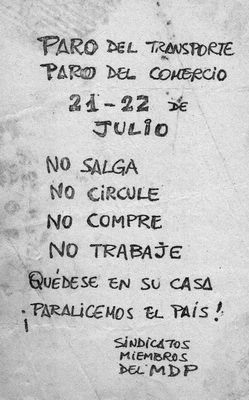 PARO DEL TRANSPORTE
PARO DEL COMERCIO
21-22 DE
JULIO
NO SALGA
NO CIRCULE
NO COMPRE
NO TRABAJE
QUÉDESE EN SU CASA
¡PARALICEMOS EL PAÍS!
SINDICATOS
MIEMBROS
DEL MDP